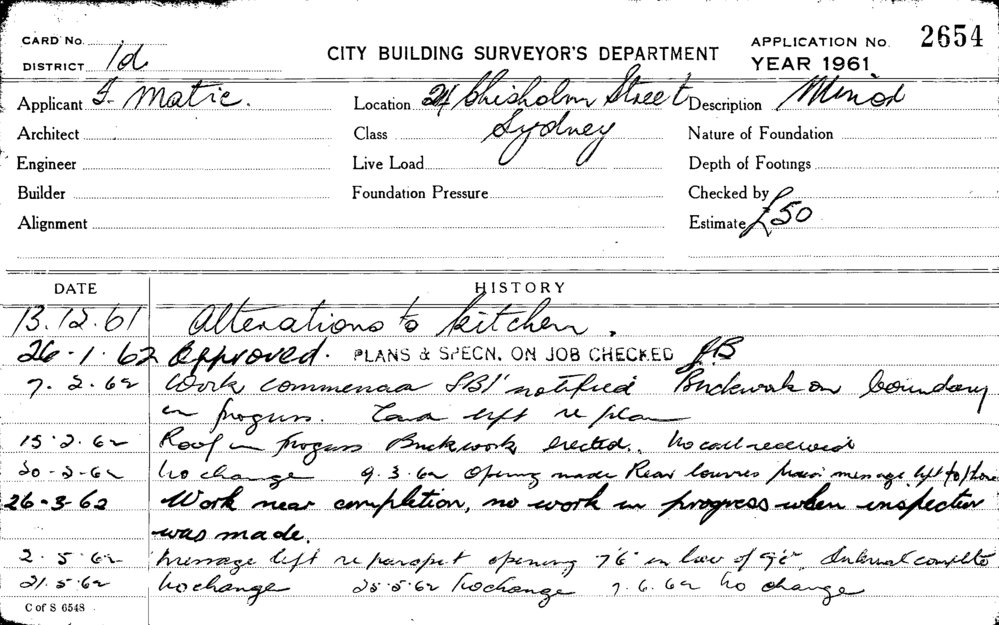 CARD No.
DISTRICT 1d
CITY BUILDING SURVEYOR'S DEPARTMENT
APPLICATION No. 2654
YEAR 1961
Applicant F. Matic.
Location 24 Chisholm Street Sydney
Description Minor
Architect
Class
Nature of Foundation
Engineer
Live Load
Depth of Footings
Builder
Foundation Pressure
Checked by
Alignment
Estimate £50
DATE HISTORY
13.12.61 Alterations to kitchen.
26-1-62 Approved. PLANS & SPECN. ON JOB CHECKED JB
7.2.62 Work commenced notified Brickwork on boundary
in progress. Card left re plan
15.2.62 Roof in progress Brickwork erected. No call received
20-2-62 No change 9.3.62 Opening made Rear louvres message left to phone
26-3-62 Work near completion, no work in progress when inspection
was made.
2.5.62 Message left re parapet opening 7'6" in lieu of Internal complete
21.5.62 No change 25.5.62 No change 7.6.62 No change
C of S 6548